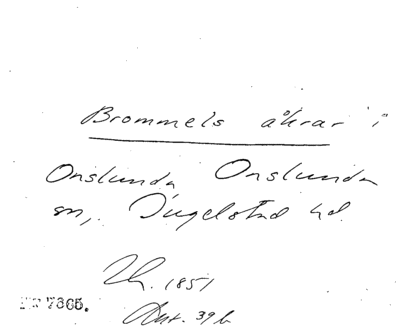 Brommels åkrar i
Onslunda Onslunda
sn, Ingelstad hd.
1851
39 b
7365.